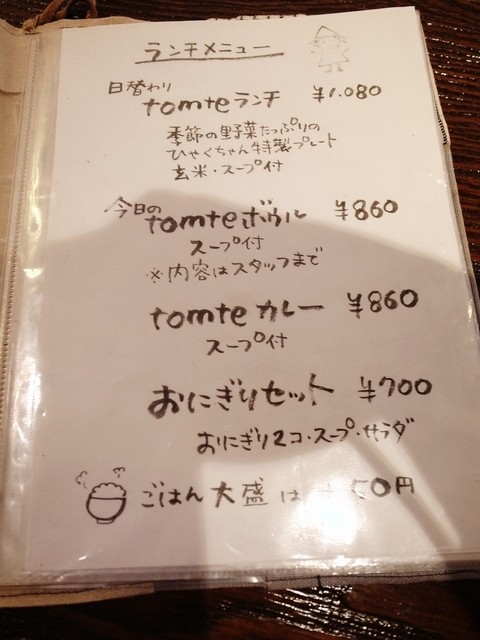 ランチメニュー
日替わり
tomteランチ ¥1.080
季節の野菜たっぷりの
ひゃくちゃん特製プレート
玄米・スープ付
今日の
tomteボウル ¥860
スープ付
※内容はスタッフまで
tomteカレー ¥860
スープ付
おにぎりセット ¥700
おにぎり2コ・スープ・サラダ
ごはん大盛は +50円